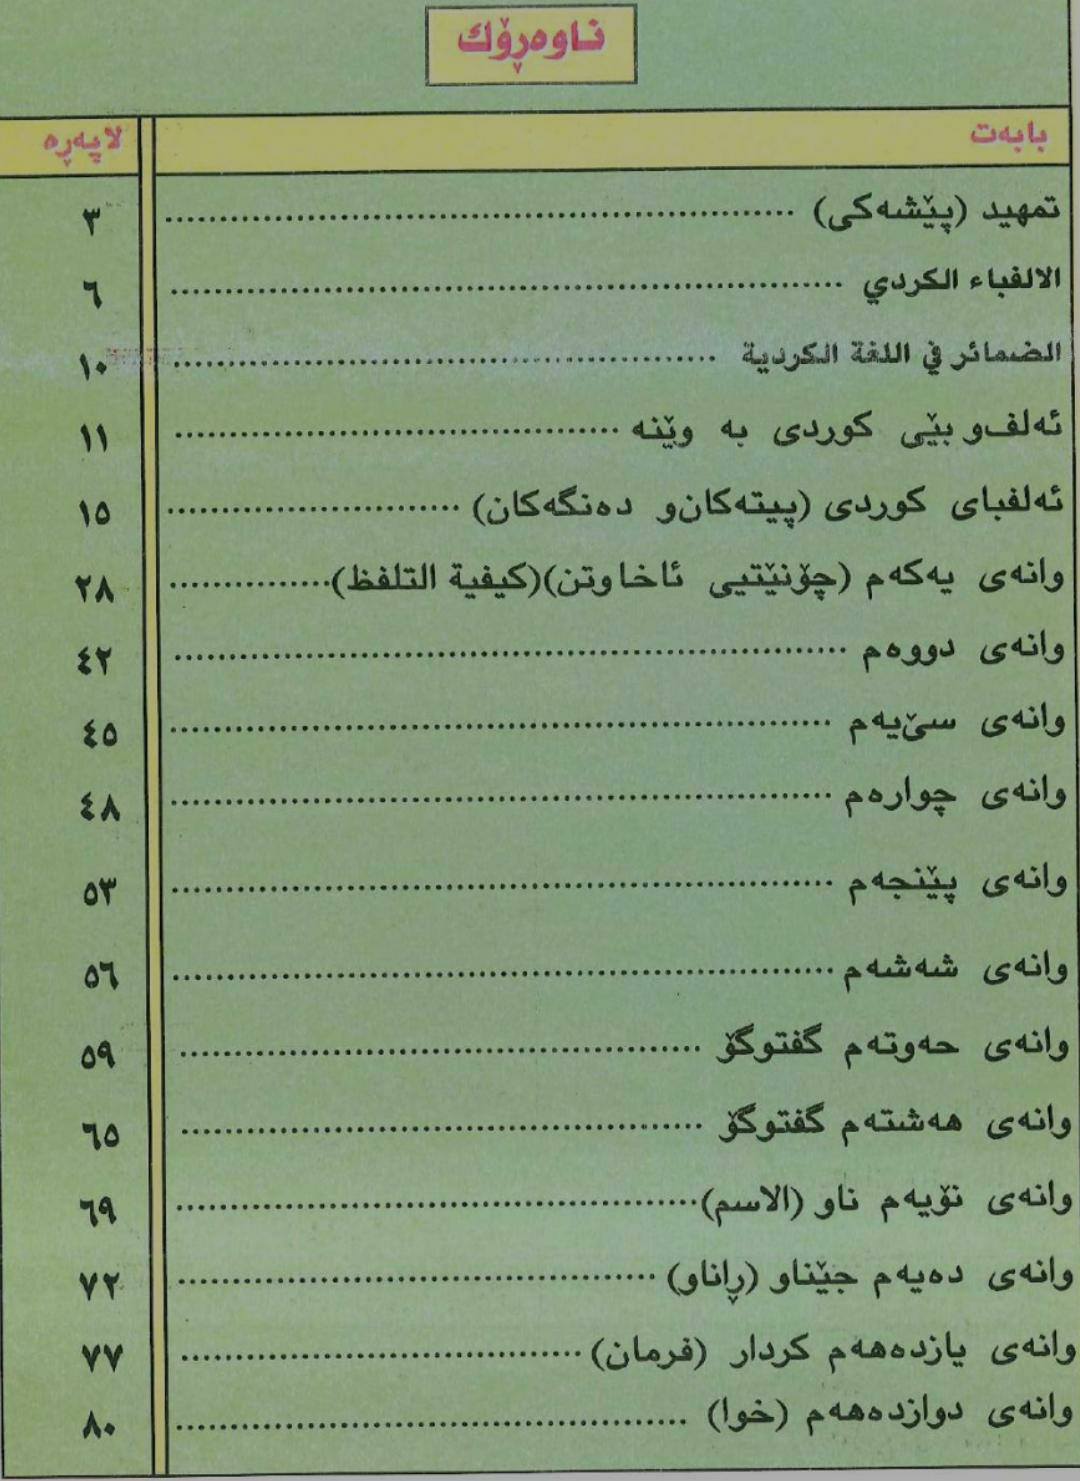 ناوەڕۆك
بابەت لاپەڕە
تمهيد (پێشەكی) ................ ٣
الالفباء الكردي ................ ٦
الضمائر في اللغة الكردية ................ ١٠
ئەلفو بێی كوردی بە وێنە ................ ١١
ئەلفبای كوردی (پیتەكانو دەنگەكان) ................ ١٥
وانەی یەكەم (چۆنێتیی ئاخاوتن)(كيفية التلفظ) ................ ٢٨
وانەی دووەم ................ ٤٢
وانەی سێیەم ................ ٤٥
وانەی چوارەم ................ ٤٨
وانەی پێنجەم ................ ٥٣
وانەی شەشەم ................ ٥٦
وانەی حەوتەم گفتوگۆ ................ ٥٩
وانەی هەشتەم گفتوگۆ ................ ٦٥
وانەی نۆیەم ناو (الاسم) ................ ٦٩
وانەی دەیەم جێناو (ڕاناو) ................ ٧٢
وانەی یازدەهەم كردار (فرمان) ................ ٧٧
وانەی دوازدەهەم (خوا) ................ ٨٠